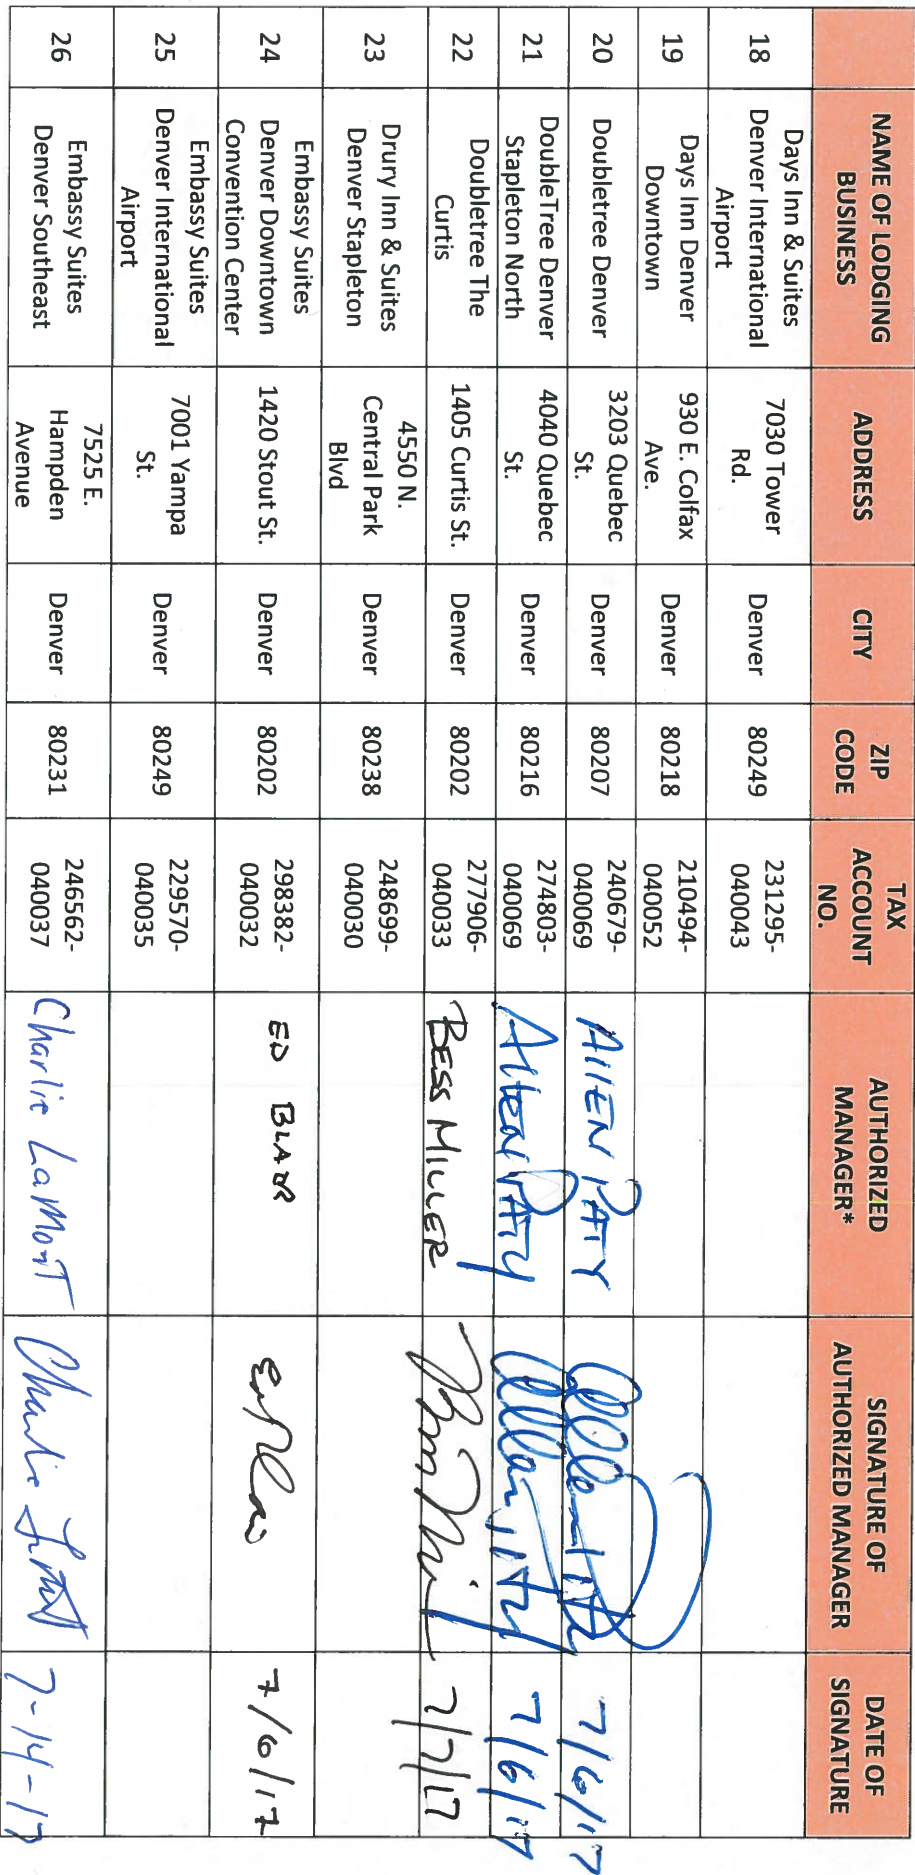 NAME OF LODGING BUSINESS | ADDRESS | CITY | ZIP CODE | TAX ACCOUNT NO. | AUTHORIZED MANAGER* | SIGNATURE OF AUTHORIZED MANAGER | DATE OF SIGNATURE
18 | Days Inn & Suites Denver International Airport | 7030 Tower Rd. | Denver | 80249 | 231295-040043
19 | Days Inn Denver Downtown | 930 E. Colfax Ave. | Denver | 80218 | 210494-040052
20 | Doubletree Denver | 3203 Quebec St. | Denver | 80207 | 240679-040069 | AllEN PATY | 7/6/17
21 | DoubleTree Denver Stapleton North | 4040 Quebec St. | Denver | 80216 | 274803-040069 | Allen PATY | 7/6/17
22 | Doubletree The Curtis | 1405 Curtis St. | Denver | 80202 | 277906-040033 | BESS MILLER | 7/7/17
23 | Drury Inn & Suites Denver Stapleton | 4550 N. Central Park Blvd | Denver | 80238 | 248699-040030
24 | Embassy Suites Denver Downtown Convention Center | 1420 Stout St. | Denver | 80202 | 298382-040032 | ED BLAIR | 7/6/17
25 | Embassy Suites Denver International Airport | 7001 Yampa St. | Denver | 80249 | 229570-040035
26 | Embassy Suites Denver Southeast | 7525 E. Hampden Avenue | Denver | 80231 | 246562-040037 | Charlie LaMont | 7-14-17